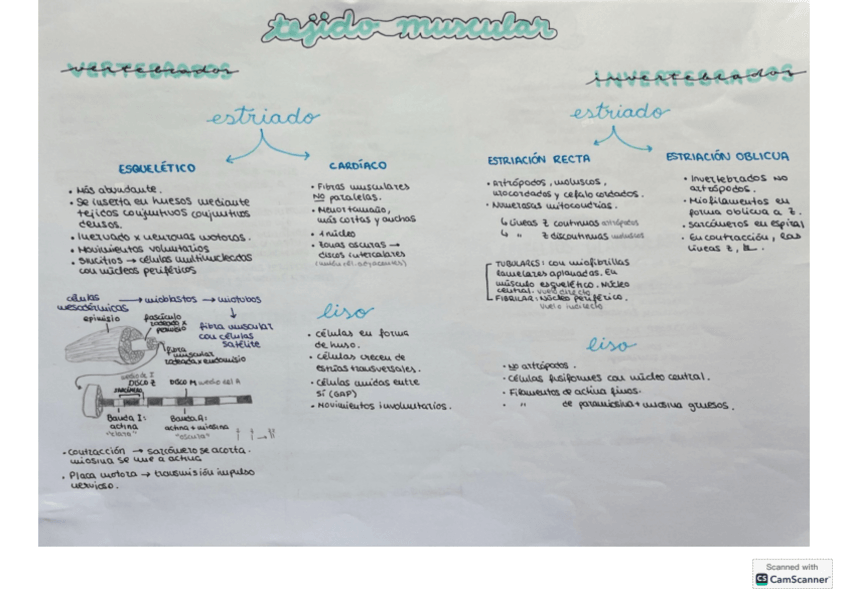 tejido muscular
VERTEBRADOS
estriado
ESQUELÉTICO
• Más abundante.
• Se inserta en huesos mediante
tejidos conjuntivos conjuntivos
densos.
• Inervado x neuronas motoras.
• Movimientos voluntarios.
• Sincitios → células multinucleadas
con núcleos periféricos
células
mesodérmicas → mioblastos → miotubos
↓
fibra muscular
con células
satélite
epimisio
fascículo
rodeado x
perimisio
fibra
muscular
rodeada x endomisio
medio de I
DISCO Z
DISCO M medio del A
sarcómero
Banda I:
actina
"clara"
Banda A:
actina + miosina
"oscura"
• Contracción → sarcómero se acorta.
miosina se une a actina
• Placa motora → transmisión impulso
nervioso.
CARDÍACO
• Fibras musculares
NO paralelas.
• Menor tamaño,
más cortas y anchas
• 1 núcleo
• Zonas oscuras →
discos intercalares
liso
• células en forma
de huso.
• Células crecen de
estrías transversales.
• Células unidas entre
sí (GAP)
• Movimientos involuntarios.
INVERTEBRADOS
estriado
ESTRIACIÓN RECTA
• Artrópodos, moluscos,
urocordados y cefalocordados.
• Numerosas mitocondrias.
↳ Líneas Z continuas artrópodos
↳ " Z discontinuas moluscos
TUBULARES: con miofibrillas
lamelares aplanadas. En
músculo esquelético. Núcleo
central. vuelo directo
FIBRILAR: Núcleo periférico.
vuelo indirecto
ESTRIACIÓN OBLICUA
• Invertebrados NO
artrópodos.
• Miofilamentos en
forma oblicua a Z.
• Sarcómeros en espiral
• En contracción, las
líneas Z,
liso
• NO artrópodos.
• Células fusiformes con núcleo central.
• Filamentos de actina finos.
• " de paramiosina + miosina gruesos.
Scanned with
CS CamScanner